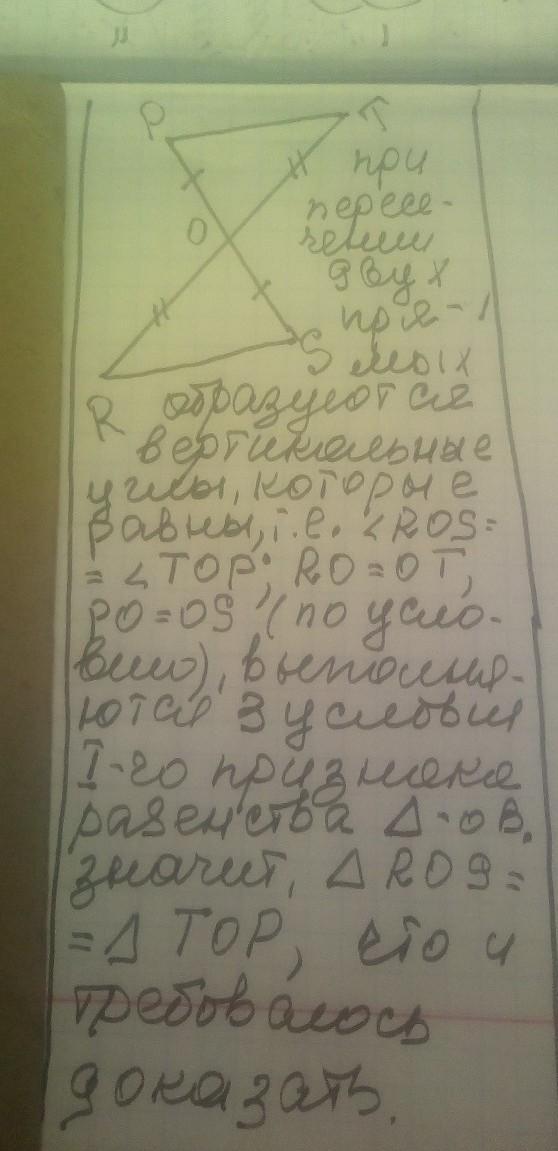 P
T
O
S
R
при
пересе-
чении
двух
пря-
мых
образуются
вертикальные
углы, которые
равны, т.е. ∠ROS=
=∠TOP; RO=OT,
PO=OS (по усло-
вию), выполня-
ются 3 условия
I-го признака
равенства Δ-ов.
значит, Δ ROS=
=Δ TOP, что и
требовалось
доказать.